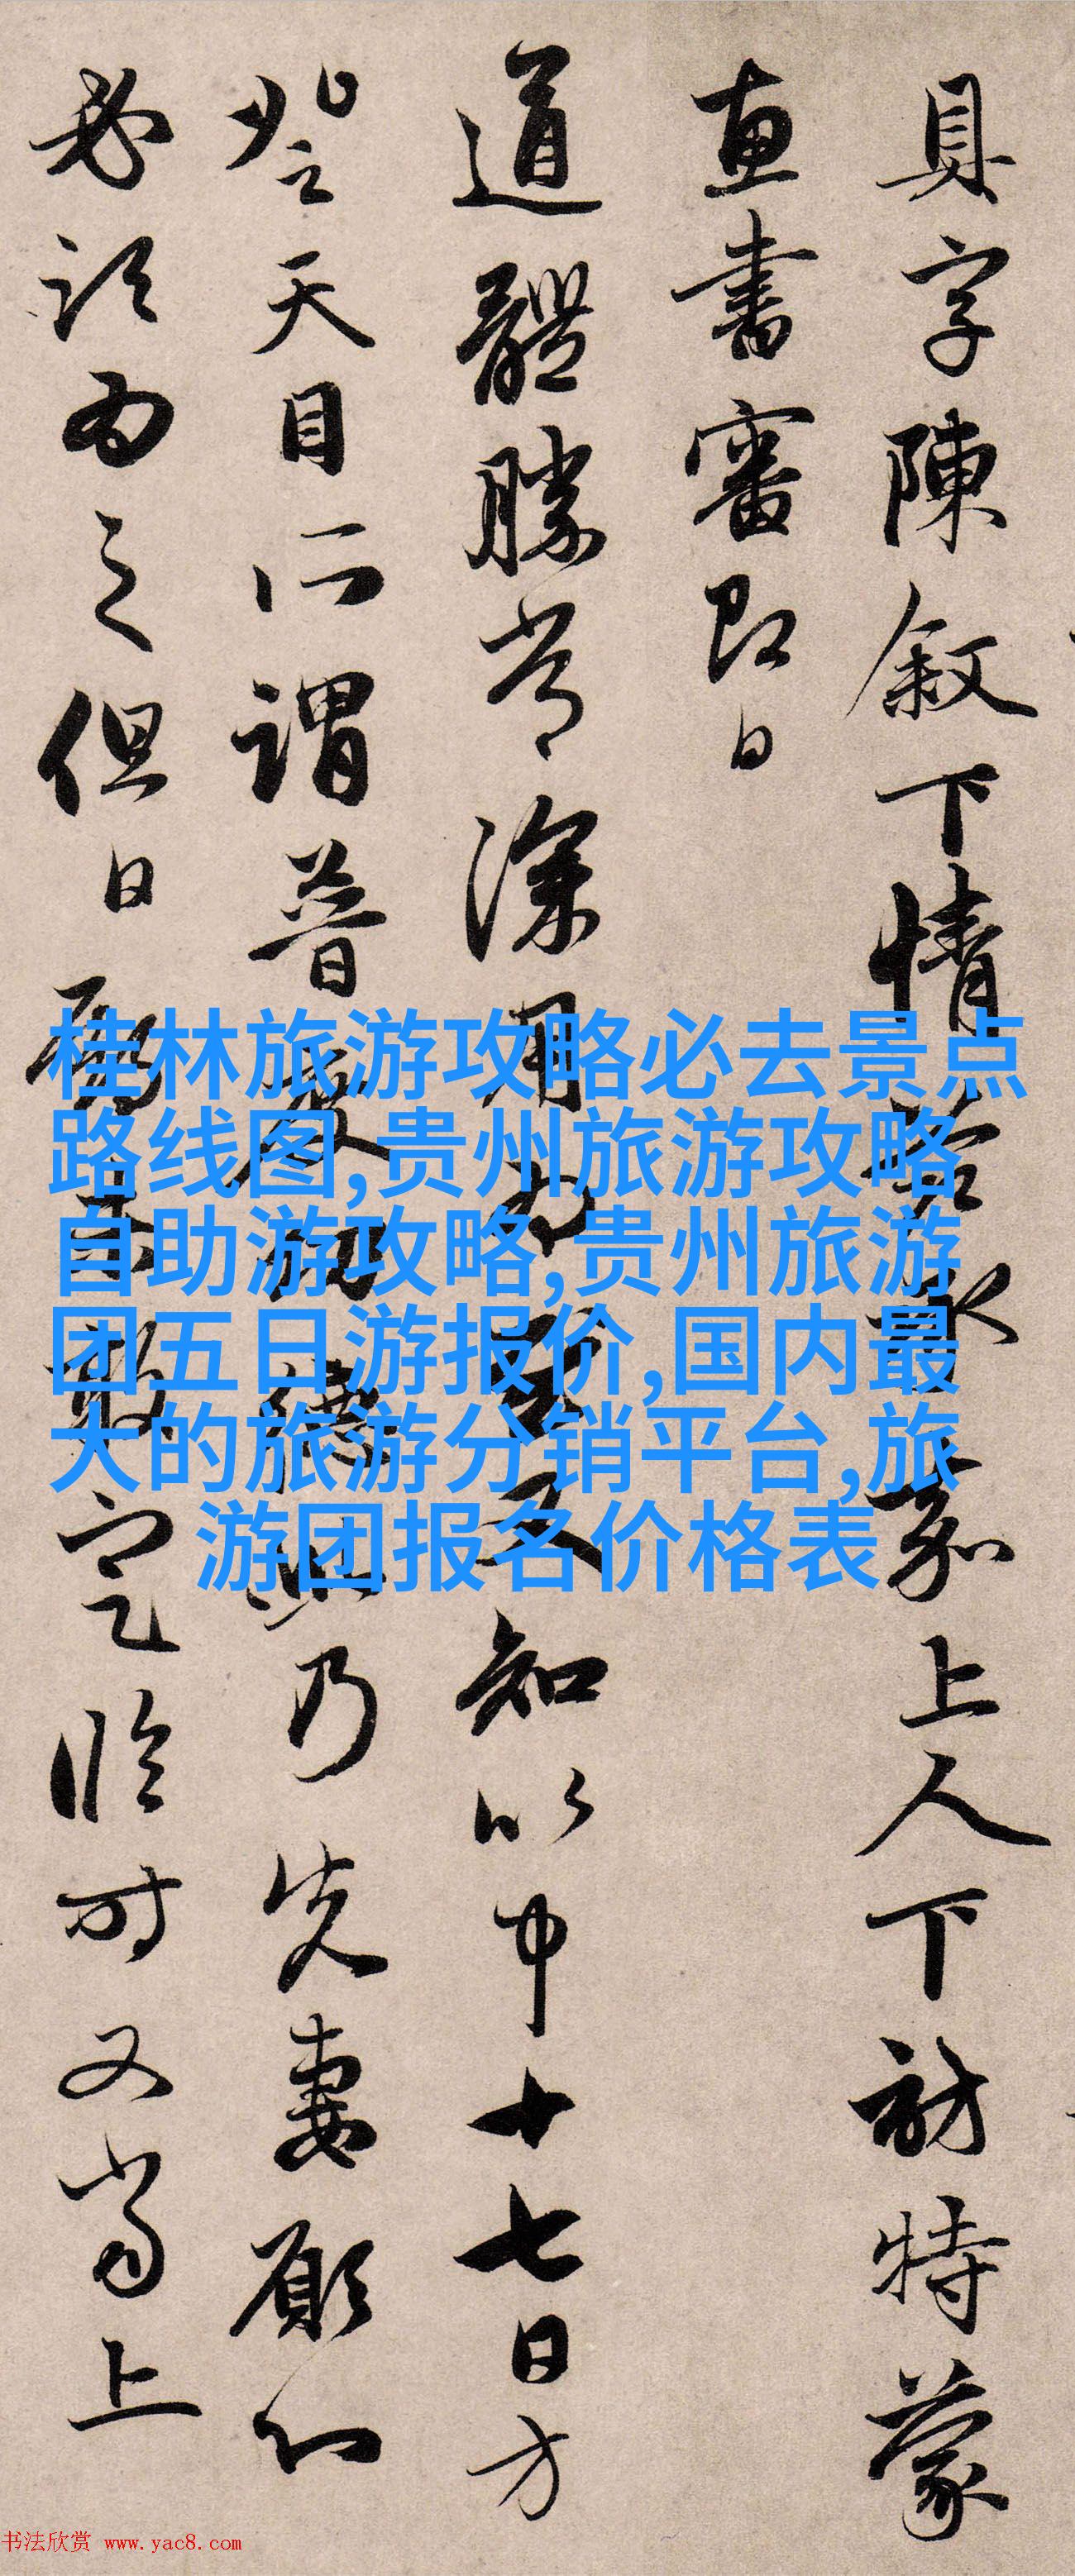 具字陳叙下情
上人下訪特蒙
惠書審即日
道體勝常深用
知以中十七日方
登天目所謂普
乃先妻願心
必須為之但日
定臨时又當上
桂林旅游攻略必去景点
路线图,贵州旅游攻略
自助游攻略,贵州旅游
团五日游报价,国内最
大的旅游分销平台,旅
游团报名价格表
书法欣赏 www.yac8.com